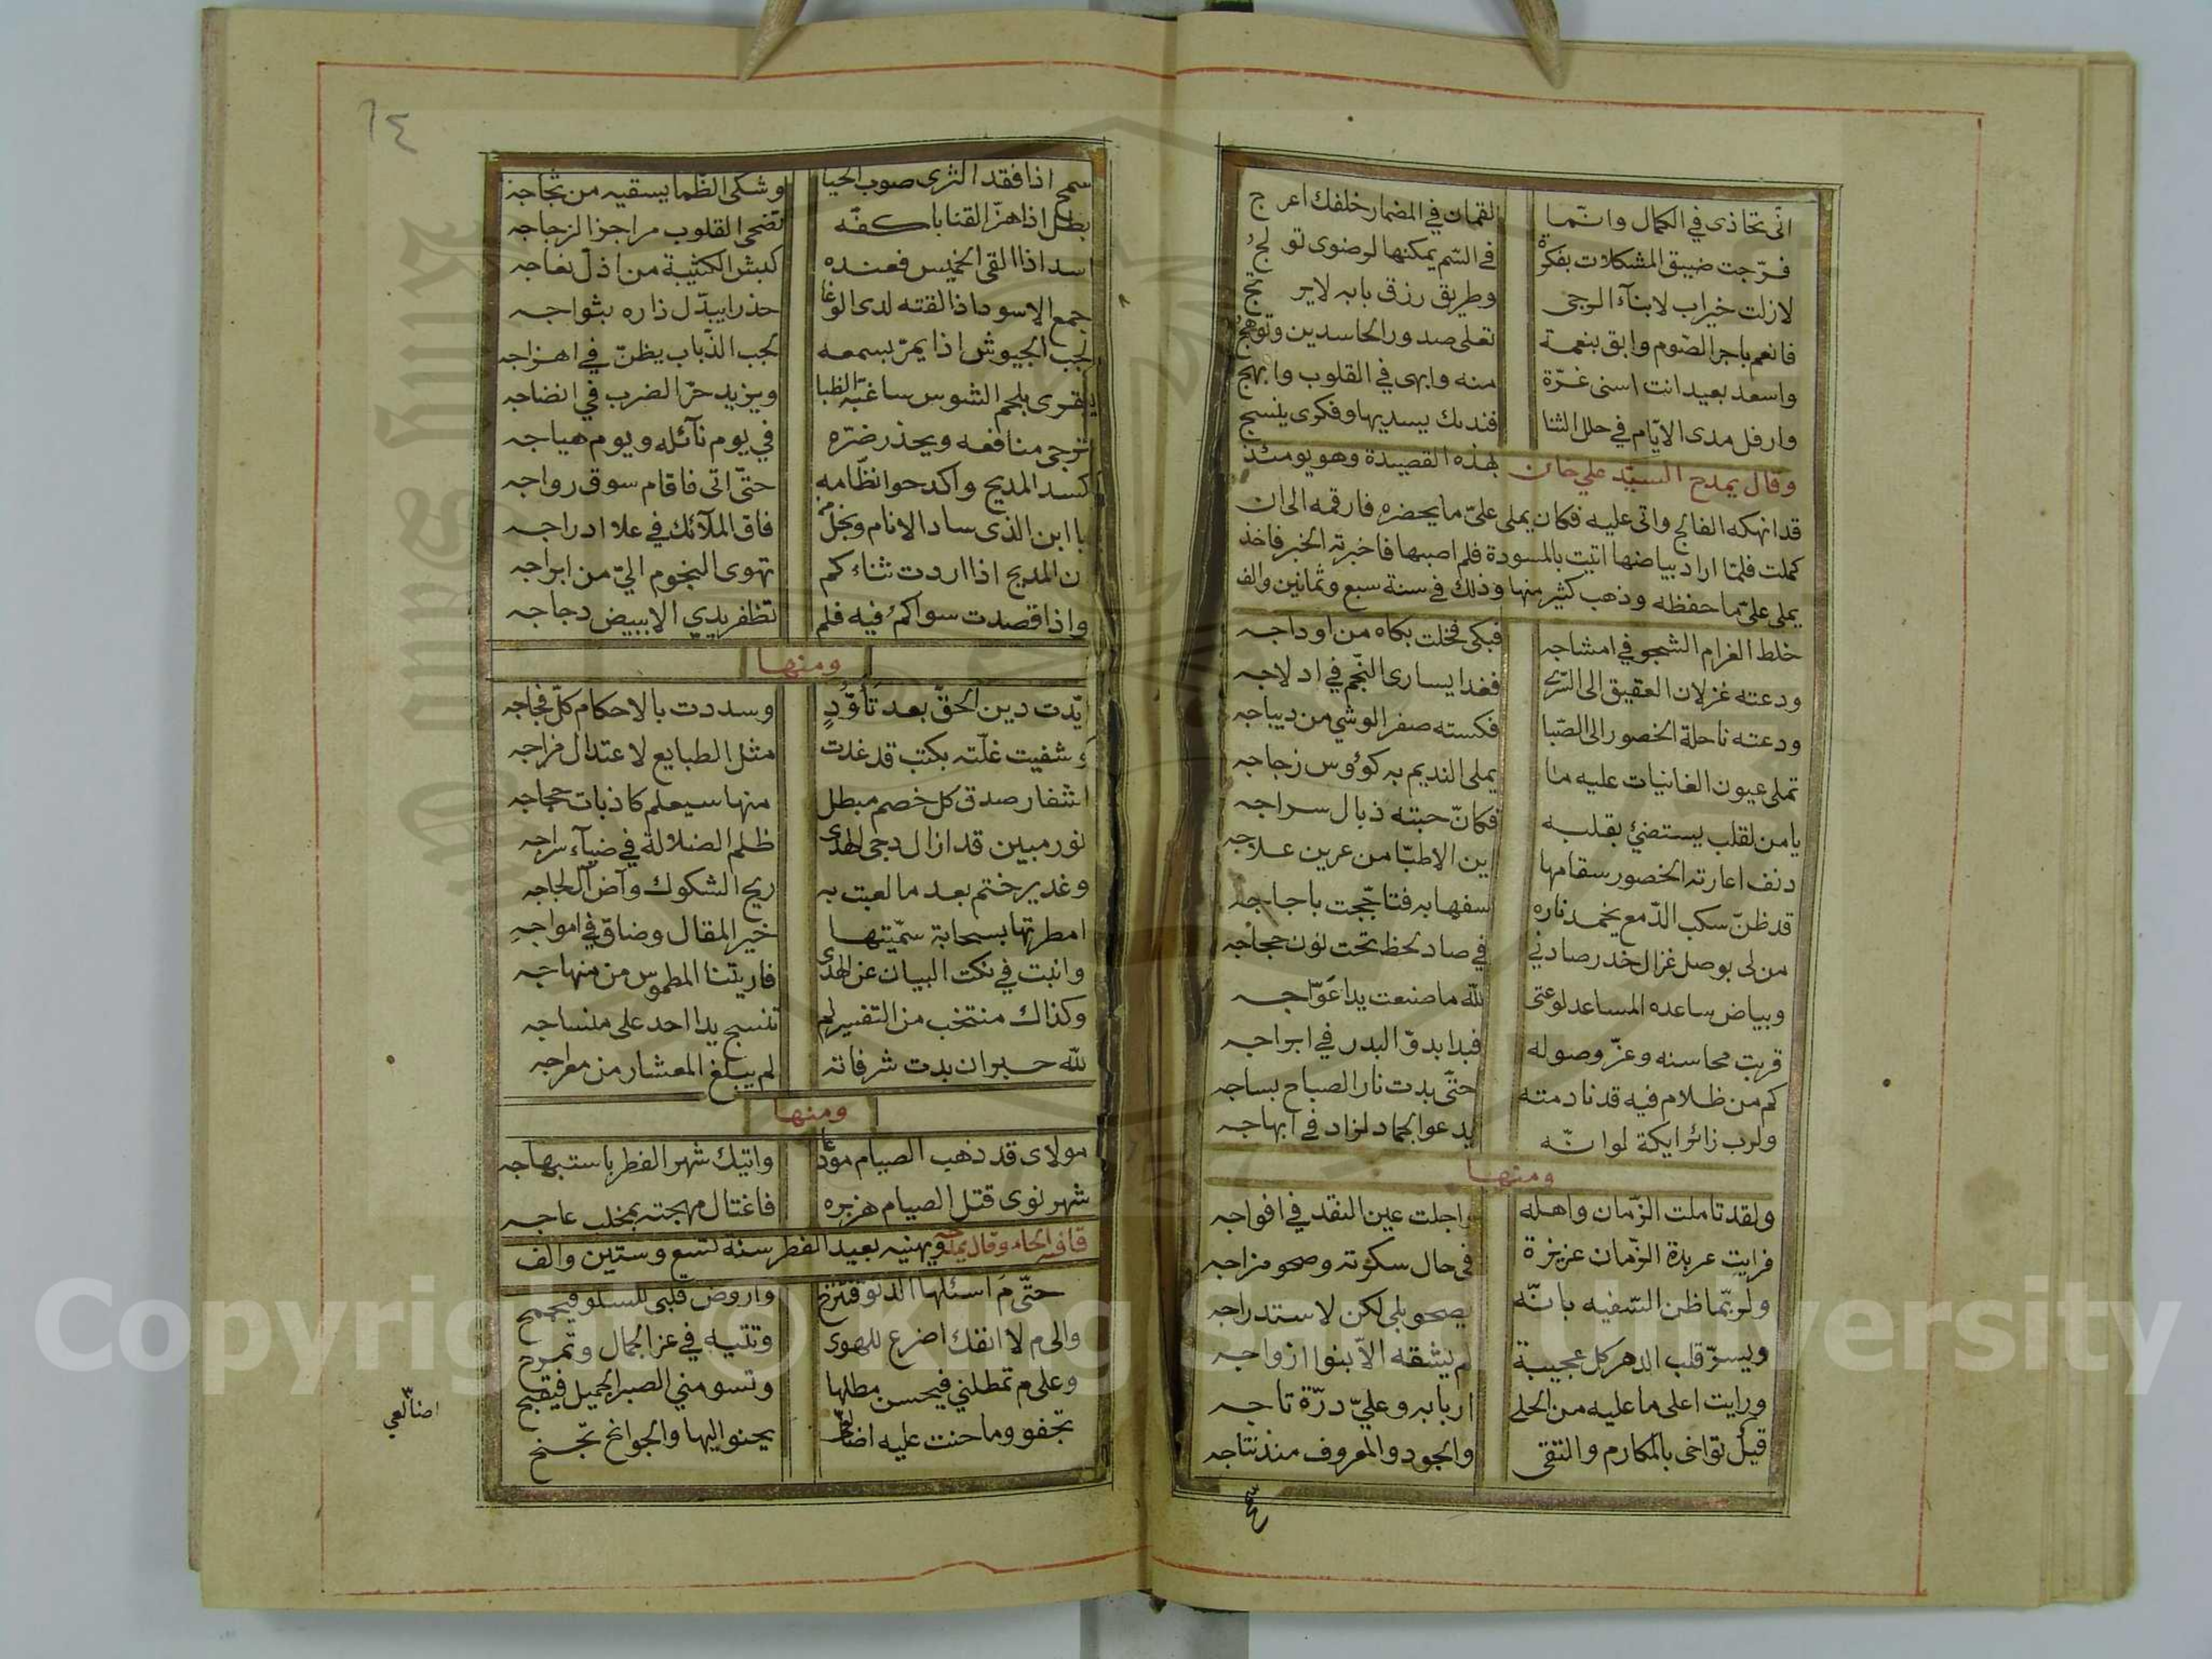 انّى تحاذى في الكمال وانّما لقمان في المضمار خلفك اعرج
فرّجت ضيق المشكلات بفكرة في السّم يمكنها لرضوى تولج
لازلت خيراب لابنآء الرجى وطريق رزق بابه لايرتج
فانعم باجر الصّوم وابق بنعمة تعلى صدور الحاسدين وتوهج
واسعد بعيد انت اسنى غرّة منه وابهى في القلوب وابهج
وارفل مدى الايّام في حلل الثنا فنداك يسديها وفكرى ينسج
وقال يمدح السيّد علي خان بهذه القصيدة وهو يومئذ
قد انهكه الفالج واتى عليه فكان يملى علىّ ما يحضره فارقمه الى ان
كملت فلمّا اراد بياضها اتيت بالمسودة فلم اصبها فاخبرته الخبر فاخذ
يملى علىّ ما حفظه وذهب كثير منها وذلك في سنة سبع وثمانين والف
خلط الغرام الشجو في امشاجه فبكى فخلت بكاه من اوداجه
ودعته غزلان العقيق الى السّرى فغدا يسارى النّجم في ادلاجه
ودعته ناحلة الخصور الى الصّبا فكسته صفر الوشي من ديباجه
تملى عيون الغانيات عليه ما يملى النديم به كؤوس زجاجه
يا من لقلب يستضئ بقلبه فكانّ حبّته ذبال سراجه
دنف اعارته الخصور سقامها اين الاطبّا من عرين علاجه
قد ظنّ سكب الدّمع يخمد ناره سفها به فتاجّجت باجاجه
من لى بوصل غزال خدر صادني في صاد لحظ تحت نون حجاجه
وبياض ساعده المساعد لوعتى للّه ما صنعت يدا عوّاجه
قربت محاسنه وعزّ وصوله فبدا بدوّ البدر في ابراجه
كم من ظلام فيه قد نادمته حتّى بدت نار الصباح بساجه
ولرب زائر ايكة لو انّه يدعو الجماد لزاد في ابهاجه
ومنها
ولقد تاملت الزّمان واهله واجلت عين النقد في افواجه
فرايت عربدة الزّمان عزيزة في حال سكرته وصحو مزاجه
ولربّما ظن السّفيه بانّه يصحو بلى لكن لاستدراجه
ويسرّ قلب الدهر كل عجيبة لم يشقه الّا بنوا ازواجه
ورايت اعلى ما عليه من الحلى اربابه وعليّ درّة تاجه
قيل تواخى بالمكارم والتقى والجود والمعروف منذ نتاجه
سمح
٦٤
سمح اذا فقد الثرى صوب الحيا وشكى الظّما يسقيه من ثجّاجه
بطل اذا هزّ القنا باكفّه تضحى القلوب مراجز الزجاجه
اسد اذا القى الخميس فعنده كبش الكتيبة من اذلّ نعاجه
جمع الاسود اذا لقته لدى الوغا حذرا يبدّل ذاره بثواجه
لجب الجيوش اذا يمرّ بسمعه لجب الذّباب يظنّ في اهزاجه
يقرى بلحم الشوس ساغبة الظبا ويزيد حرّ الضرب في انضاجه
ترجى منافعه ويحذر ضرّه في يوم نآئله ويوم هياجه
كسد المديح واكدحوا نظّامه حتّى اتى فاقام سوق رواجه
يا ابن الذى ساد الانام ونجل من فاق الملآئك في علا ادراجه
ان المديح اذا اردت ثناءكم تهوى النجوم اليّ من ابراجه
واذا قصدت سواكم فيه فلم تظفر يدي الا ببيض دجاجه
ومنها
ايّدت دين الحقّ بعد تاوّدٍ وسددت بالاحكام كلّ فجاجه
وشفيت غلّته بكتب قد غدت مثل الطبايع لاعتدال مزاجه
اشفار صدق كل خصم مبطل منها سيعلم كاذبات حجاجه
نور مبين قد ازال دجى الهدى ظلم الضلالة في ضيآء سراجه
وغدير ختم بعد ما لعبت به ريح الشكوك وآض آل لجاجه
امطرتها بسحابة سمّيتها خير المقال وضاق في امواجه
وانبت في نكت البيان عن الهدى فاريتنا المطموس من منهاجه
وكذاك منتخب من التفسير لم تنسج يدا احد على منساجه
للّه حبر ان بدت شرفاته لم يبلغ المعشار من معراجه
ومنها
مولاى قد ذهب الصيام مودّعا واتيك شهر الفطر باستبهاجه
شهر نوى قتل الصيام هزبره فاغتال مهجته بمخلب عاجه
قافيه الحاء وقال يمدحه ويهنيه بعيد الفطر سنة تسع وستين والف
حتّى مَ اسئلها الدنوّ فتنزح واروض قلبي للسلو فيجمح
والى م لا انفك اضرع للهوى وتتيه في عز الجمال وتمرح
وعلى م تمطلني فيحسن مطلها وتسومني الصبر الجميل فيقبح
تجفو وما حنت عليه اضالعى يحنو اليها والجوانح تجنح
اضالعي